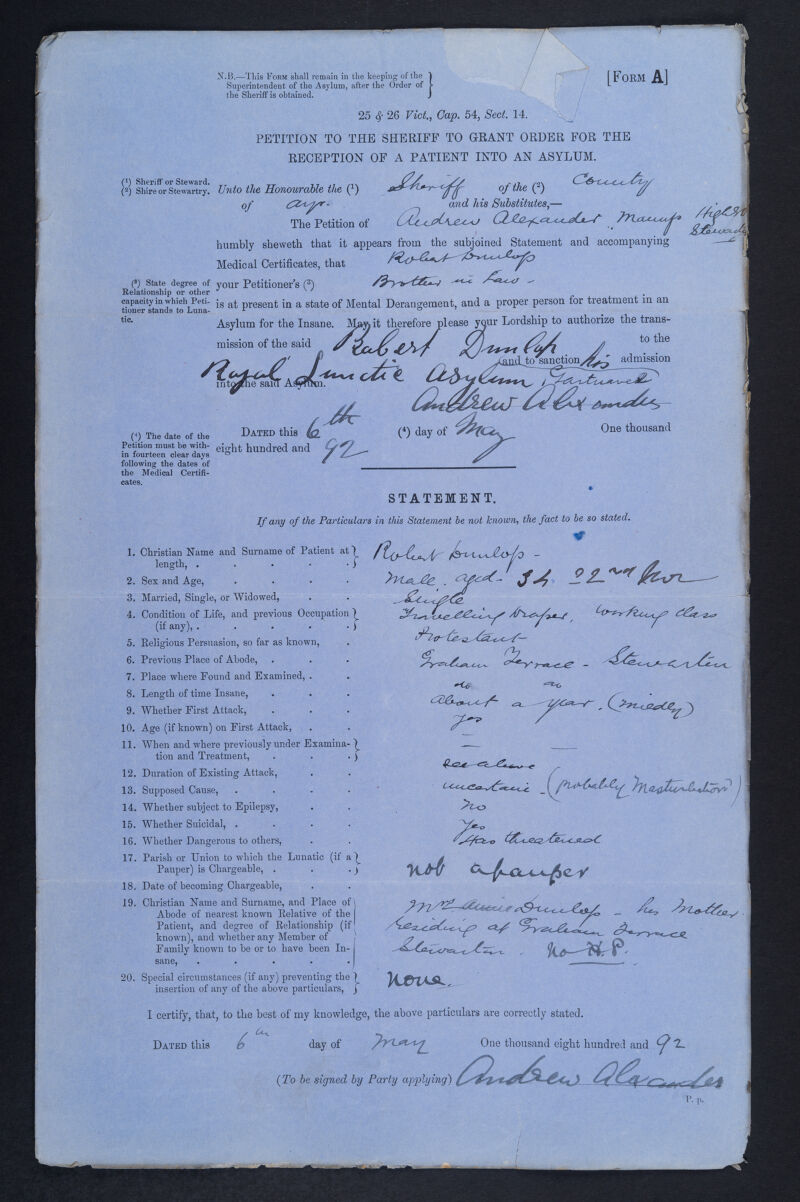 N.B.—This Form shall remain in the keeping of the
Superintendent of the Asylum, after the Order of
the Sheriff is obtained.
[Form A]
25 & 26 Vict., Cap. 54, Sect. 14.
PETITION TO THE SHERIFF TO GRANT ORDER FOR THE
RECEPTION OF A PATIENT INTO AN ASYLUM.
(¹) Sheriff or Steward.
(²) Shire or Stewartry.
Unto the Honourable the (¹) Sheriff of the (²) County
of Ayr. and his Substitutes,—
The Petition of Andrew Alexander High St
Stewarton
humbly sheweth that it appears from the subjoined Statement and accompanying
Medical Certificates, that Robert Dunlop
(³) State degree of
Relationship or other
capacity in which Peti-
tioner stands to Luna-
tic.
your Petitioner's (³) Brother in Law -
is at present in a state of Mental Derangement, and a proper person for treatment in an
Asylum for the Insane. May it therefore please your Lordship to authorize the trans-
mission of the said Robert Dunlop to the
Royal Lunatic Asylum, Gartnavel and to sanction his admission
into the said Asylum.
Andrew Alexander
(⁴) The date of the
Petition must be with-
in fourteen clear days
following the dates of
the Medical Certifi-
cates.
Dated this 6th (⁴) day of May One thousand
eight hundred and 92
STATEMENT.
If any of the Particulars in this Statement be not known, the fact to be so stated.
1. Christian Name and Surname of Patient at length, . Robert Dunlop -
2. Sex and Age, Male. aged. 34. 22nd Nov
3. Married, Single, or Widowed, Single
4. Condition of Life, and previous Occupation (if any), . Travelling Draper, working class
5. Religious Persuasion, so far as known, Protestant
6. Previous Place of Abode, . Graham Terrace - Stewarton
7. Place where Found and Examined, . do do
8. Length of time Insane, About a year.
9. Whether First Attack, yes
10. Age (if known) on First Attack, —
11. When and where previously under Examina-
tion and Treatment, — —
12. Duration of Existing Attack, see above
13. Supposed Cause, uncertain - (probably Masturbation)
14. Whether subject to Epilepsy, no
15. Whether Suicidal, . Yes
16. Whether Dangerous to others, Has threatened
17. Parish or Union to which the Lunatic (if a
Pauper) is Chargeable, . not a pauper
18. Date of becoming Chargeable,
19. Christian Name and Surname, and Place of
Abode of nearest known Relative of the
Patient, and degree of Relationship (if
known), and whether any Member of
Family known to be or to have been In-
sane,
Mrs Annie Dunlop - his Mother
residing at Graham Terrace
Stewarton. No H.P.
20. Special circumstances (if any) preventing the
insertion of any of the above particulars, None.
I certify, that, to the best of my knowledge, the above particulars are correctly stated.
Dated this 6th day of May One thousand eight hundred and 92
(To be signed by Party applying) Andrew Alexander
P. p.